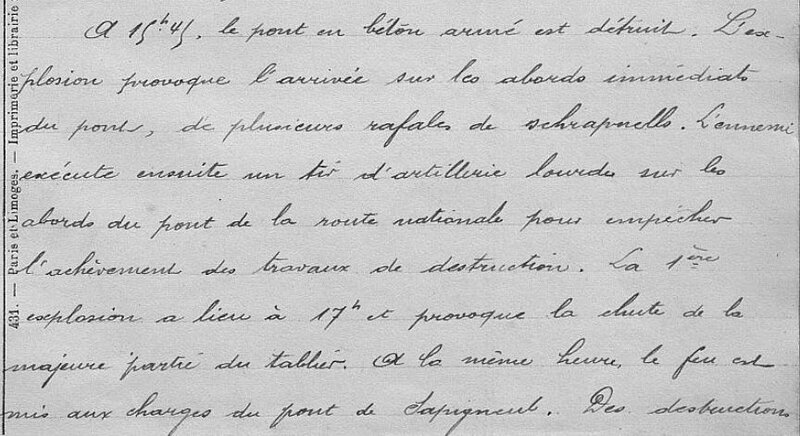 A 15h 45, le pont en béton armé est détruit. L'ex-
plosion provoque l'arrivée sur les abords immédiats
du pont, de plusieurs rafales de schrapnells. L'ennemi
exécute ensuite un tir d'artillerie lourde sur les
abords du pont de la route nationale pour empêcher
l'achèvement des travaux de destruction. La 1ère
explosion a lieu à 17h et provoque la chute de la
majeure partie du tablier. A la même heure, le feu est
mis aux charges du pont de Sapigneul. Des destructions
431. — Paris et Limoges. — Imprimerie et librairie